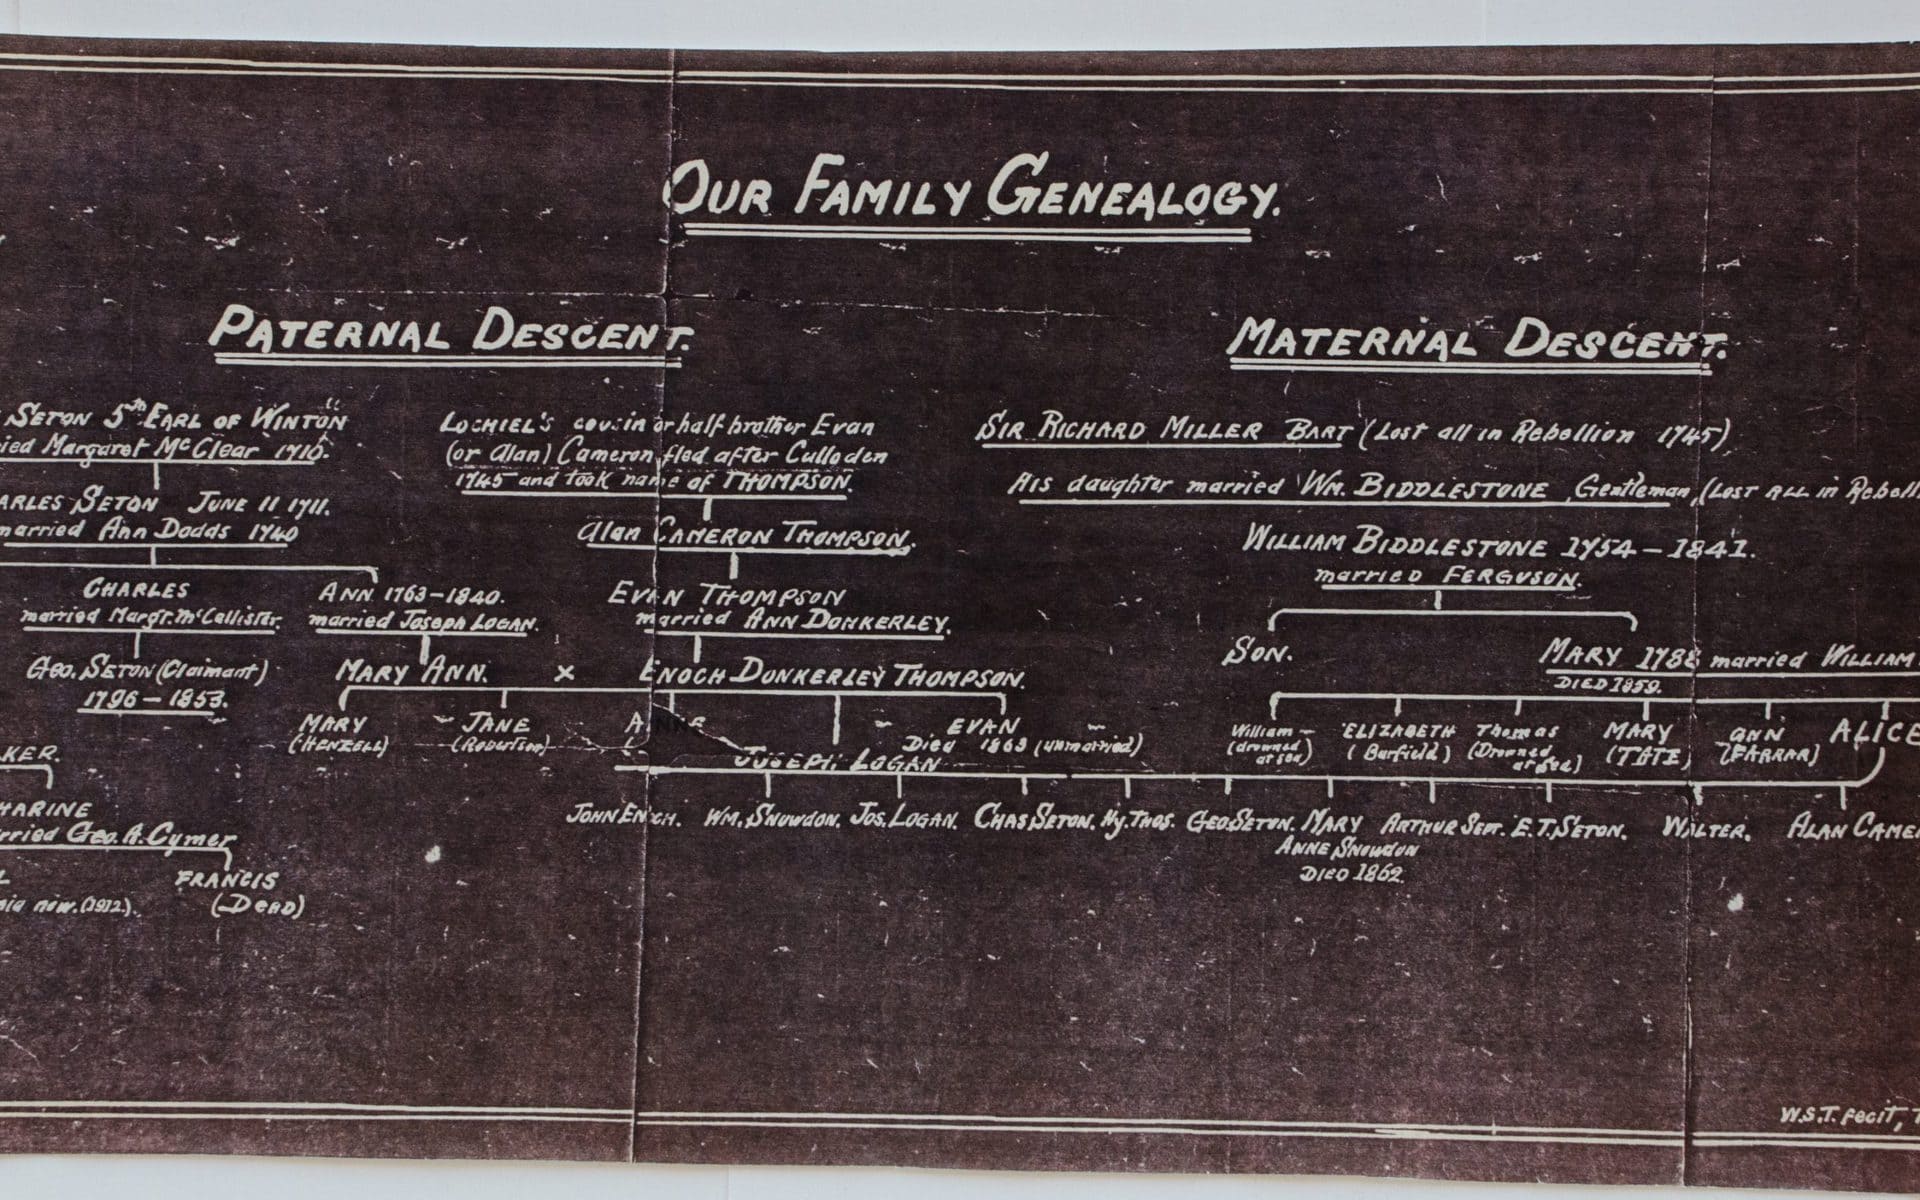 OUR FAMILY GENEALOGY.
PATERNAL DESCENT.
SETON 5th EARL OF WINTON
ied Margaret McClear 1710.
ARLES SETON JUNE 11 1711.
married Ann Dodds 1740
CHARLES
married Margr. McCallister.
Geo. SETON (Claimant)
1796 – 1853.
ANN 1763–1840.
married Joseph LOGAN.
MARY ANN. x ENOCH DUNKERLEY THOMPSON.
LOCHIEL'S cousin or half brother Evan
(or Alan) Cameron fled after Culloden
1745 and took name of THOMPSON.
Alan CAMERON THOMPSON.
EVAN THOMPSON
married ANN DONKERLEY.
MARY
(HENZELL)
JANE
(Robertson)
EVAN
Died 1863 (unmarried)
JOSEPH LOGAN
MATERNAL DESCENT.
SIR RICHARD MILLER BART (Lost all in Rebellion 1745)
His daughter married Wm. BIDDLESTONE, Gentleman, (LOST ALL in Rebell
WILLIAM BIDDLESTONE 1754 – 1841.
married FERGUSON.
SON.
MARY 1788 married WILLIAM
DIED 1859.
William
(drowned
at sea)
ELIZABETH
(Barfield)
Thomas
(Drowned
at sea)
MARY
(TATE)
ANN
(FARRAR)
ALICE
JOHN ENOCH. WM. SNOWDON. JOS. LOGAN. CHAS SETON. Hy. THOS. GEO SETON. MARY ARTHUR SEPT. E.T. SETON. WALTER. ALAN CAME
ANNE SNOWDON
DIED 1862.
KER.
HARINE
rried Geo. A. Cymer
FRANCIS
(DEAD)
nia now. (1912).
W.S.T. fecit,